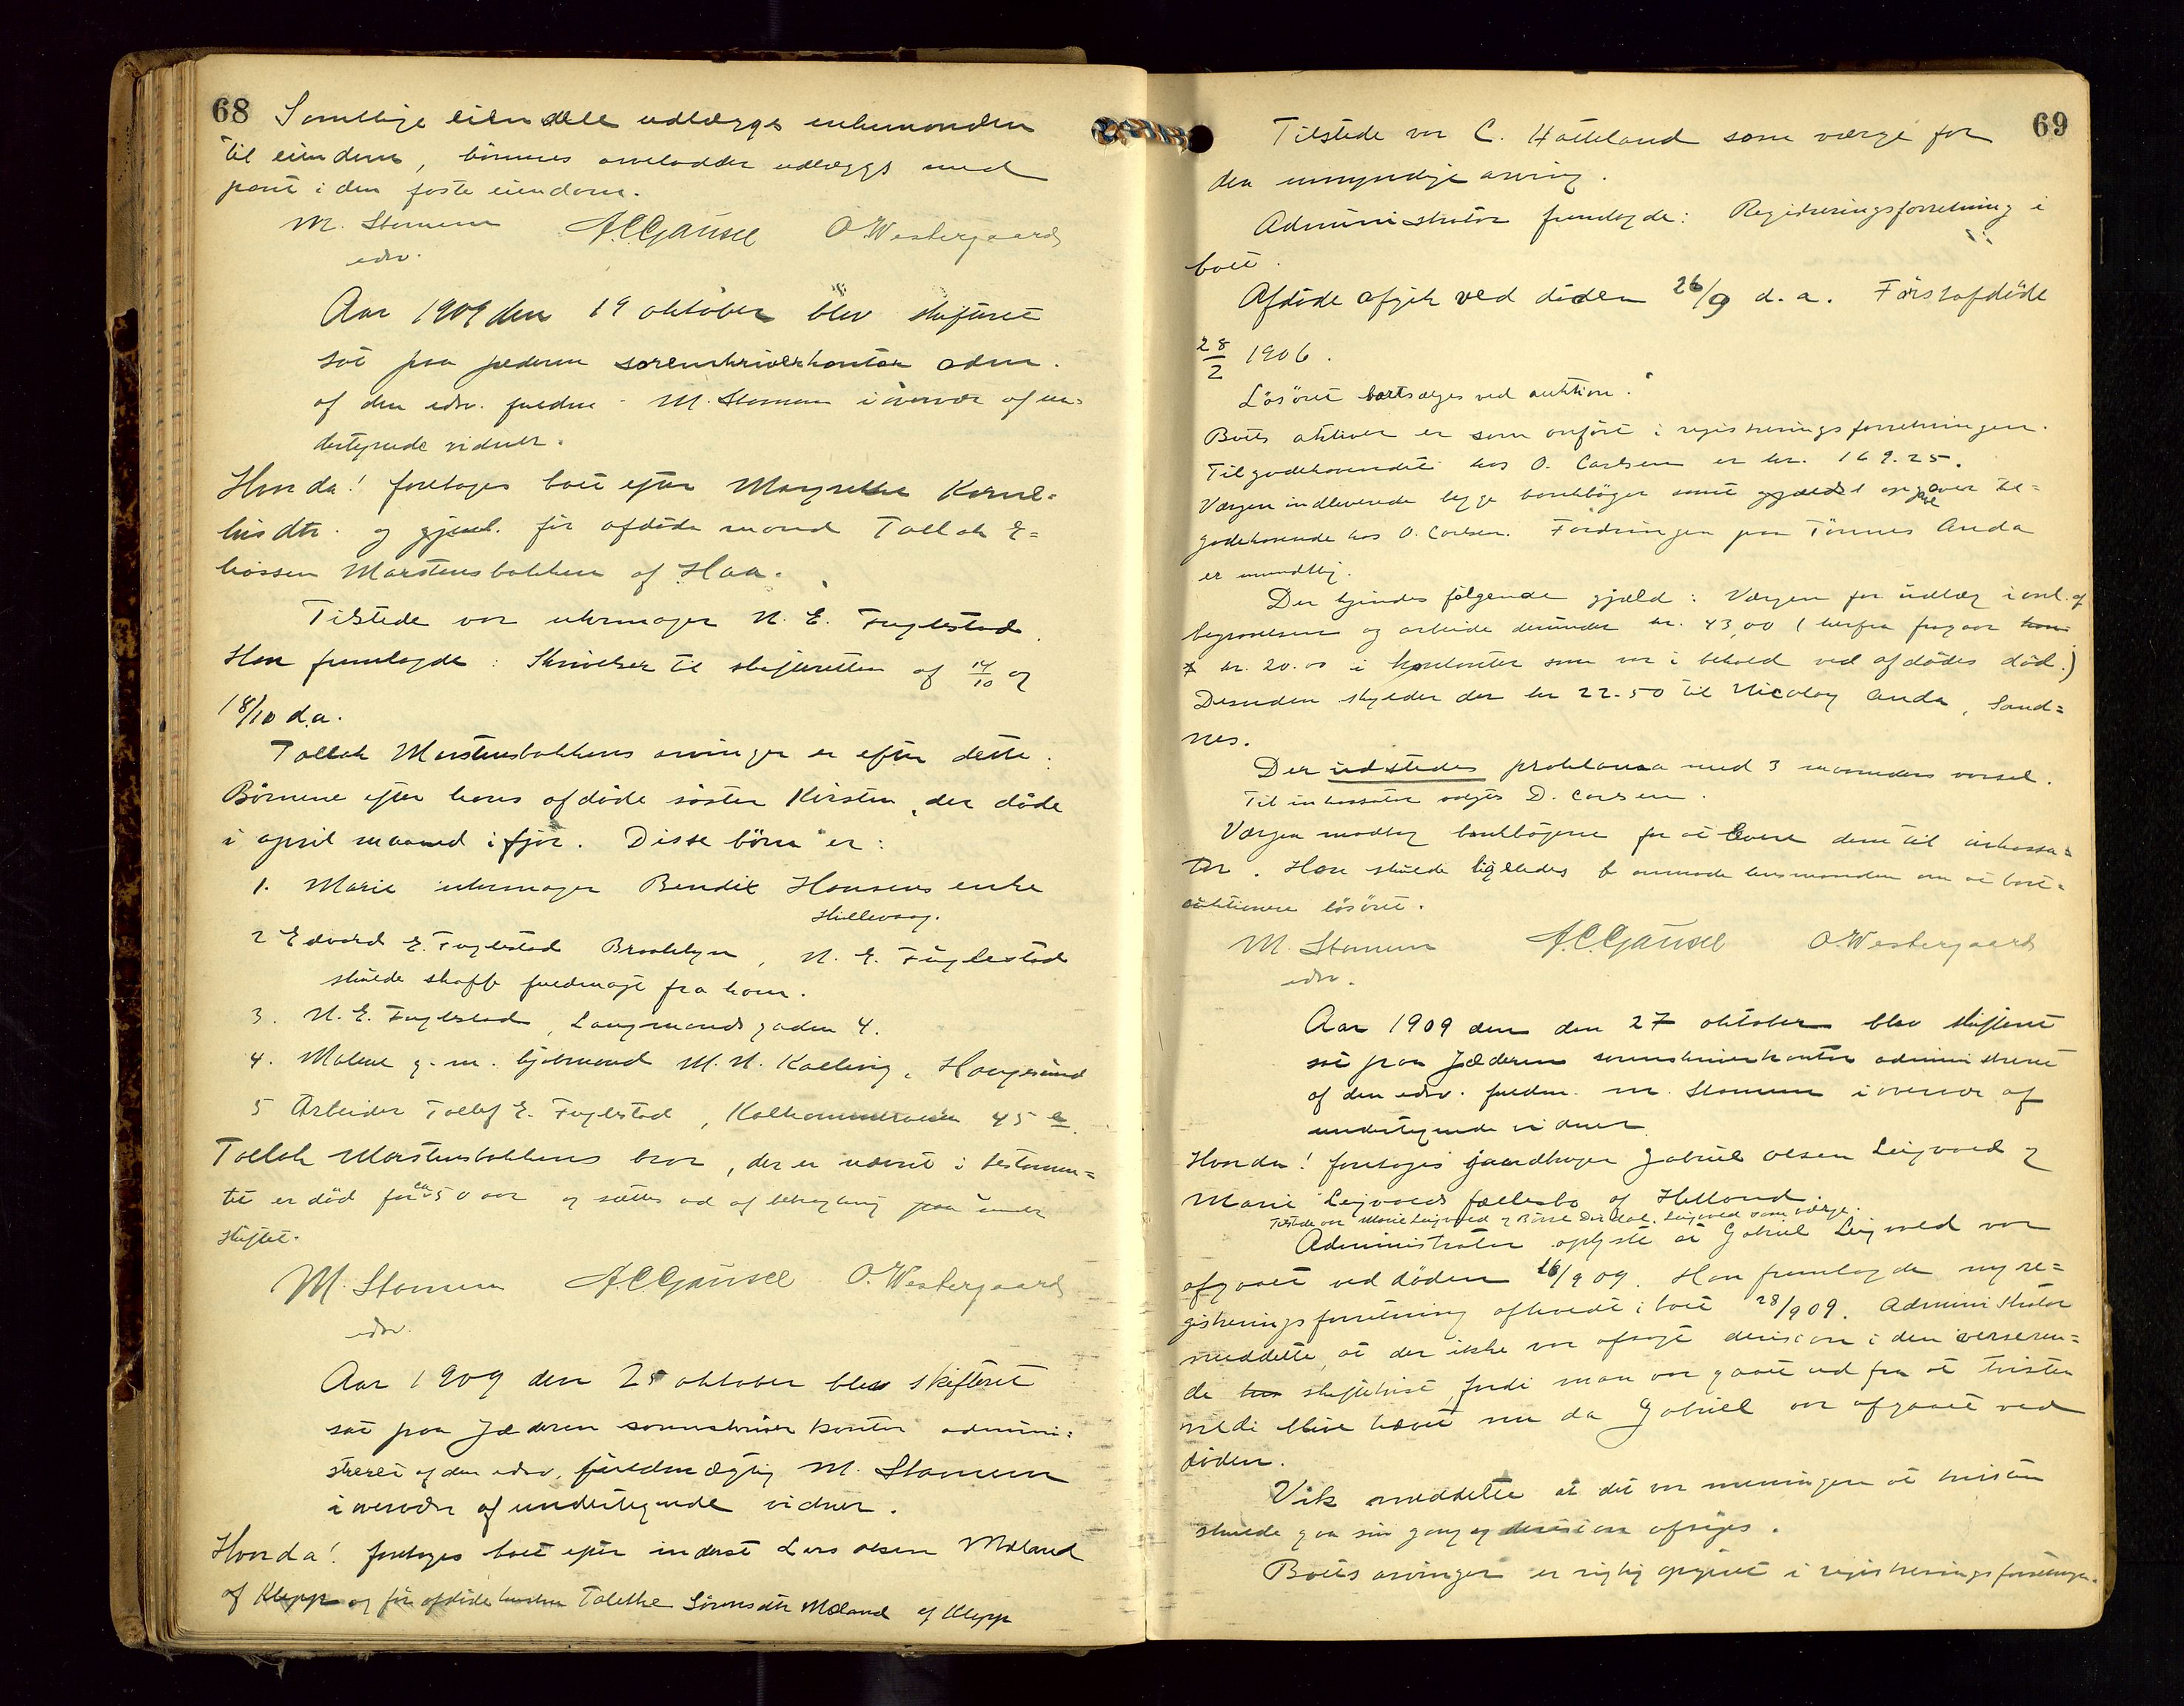 68
Samtlige eiendele udlægges enkemanden
til eiendom, børnenes arvelodder udlægges med
pant i den faste eiendom.
M. Stornem A.C. Gausel O. Westergaard
edsv.
Aar 1909 den 19 oktober blev skifteret
sat paa jæderen sorenskriverkontor adm.
af den edsv. fuldm. M. Stornem i overvær af un=
dertegnede vidner.
Hvorda! foretoges boet efter Margrethe Kornel=
iusdtr. og gjenl. før afdøde mand Tollak E=
liassen Marstensbakken af Haa.
Tilstede var uhrmager N. E. Fuglestad.
Han fremlagde: Skrivelser til skifteretten af 14/10 og
18/10 d.a.
Tollak Marstensbakkens arvinger er efter dette:
Børnene efter hans afdøde søster Kirsten, der døde
i april maaned ifjor. Disse børn er:
1. Marie uhrmager Bendix Hansens enke
Hillevaag.
2 Edvard E. Fuglestad Brooklyn, N. E. Fuglestad
skulde skaffe fuldmagt fra ham.
3. N. E. Fuglestad, Langmandsgaden 4.
4. Malene g. m. kjøbmand M. N. Kallevig, Haugesund
5 Arbeider Tollef E. Fuglestad, 45 a.
Tollak Marstensbakkens bror, der er nævnt i testamen=
tet er død for ca 50 aar og sættes ud af betragtning paa
skiftet.
M. Stornem A.C. Gausel O. Westergaard
edsv.
Aar 1909 den 25 oktober blev skifteret
sat paa Jæderen sorenskriverkontor admini=
streret af den edsv. fuldmægtig M. Stornem
i overvær af undertegnede vidner.
Hvorda! foretoges boet efter inderst Lars Olsen Mæland
af Klepp og før afdøde hustru Talethe Sørensdtr Mæland af Klepp
69
Tilstede var C. Hatteland som værge for
den umyndige arving.
Administrator fremlagde: Registreringsforretning i
boet.
Afdøde afgik ved døden 26/9 d.a. Førstafdøde
28/2 1906.
Løsøret bortsælges ved auktion.
Boets aktiver er som anført i registreringsforretningen.
Tilgodehavendet hos O. Carlsen er kr. 169.25.
Værgen indleverede begge bankbøger samt opgave over til=
godehavende hos O. Carlsen. Fordringen paa Tønnes Anda
er mundtlig.
Der findes følgende gjæld: Værgen for udlæg i anl. af
begravelsen og arbeide derunder kr. 43,00 (herfra fragaar
kr. 20.00 i kontanter som var i behold ved afdødes død.)
Desuden skyldes der kr 22.50 til Nicolay Anda, Sand=
nes.
Der udstedes proklama med 3 maaneders varsel.
Til inkassator valgtes D. Carlsen.
Værgen modtog bankbøgerne for at levere dem til inkassa=
tor. Han skulde ligeledes anmode lensmanden om at bort=
auktionere løsøret.
M. Stornem A.C. Gausel O. Westergaard
edsv.
Aar 1909 den den 27 oktober blev skifteret
sat paa Jæderen sorenskriverkontor administreret
af den edsv. fuldm. M. Stornem i overvær af
undertegnede vidner
Hvorda! foretoges gaardbruger Gabriel Olsen Leigvold og
Marie Leigvolds fællesbo af Hetland.
Tilstede var Marie Leigvold og Leigvold som værge.
Administrator oplyste at Gabriel Leigvold var
afgaaet ved døden 16/9 09. Han fremlagde ny re=
gistreringsforretning afholdt i boet 28/9 09. Administrator
meddelte, at der ikke var afsagt decision i den verseren=
de skiftetvist, fordi man var gaaet ud fra at tvisten
vilde blive hævet nu da Gabriel var afgaaet ved
døden.
Vik meddelte at det var meningen at tvisten
skulde gaa sin gang og decision afsiges.
Boets arvinger er rigtig opgivet i registreringsforretningen.